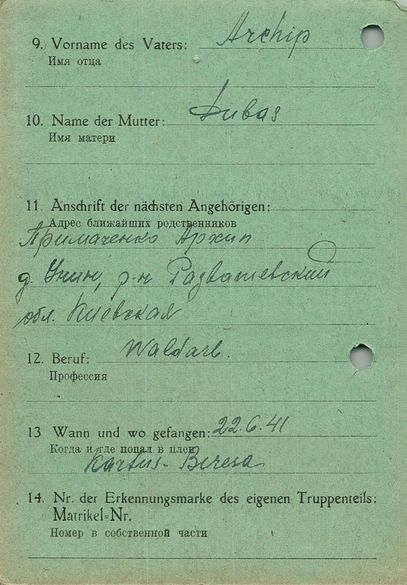 9. Vorname des Vaters: Archip
Имя отца
10. Name der Mutter: Lubas
Имя матери
11. Anschrift der nächsten Angehörigen:
Адрес ближайших родственников
Примаченко Архип
д. Унин, р-н Розважевский
обл. Киевская
12. Beruf: Waldarb.
Профессия
13 Wann und wo gefangen: 22.6.41
Когда и где попал в плен
Kartus-Beresa
14. Nr. der Erkennungsmarke des eigenen Truppenteils:
Matrikel-Nr.
Номер в собственной части